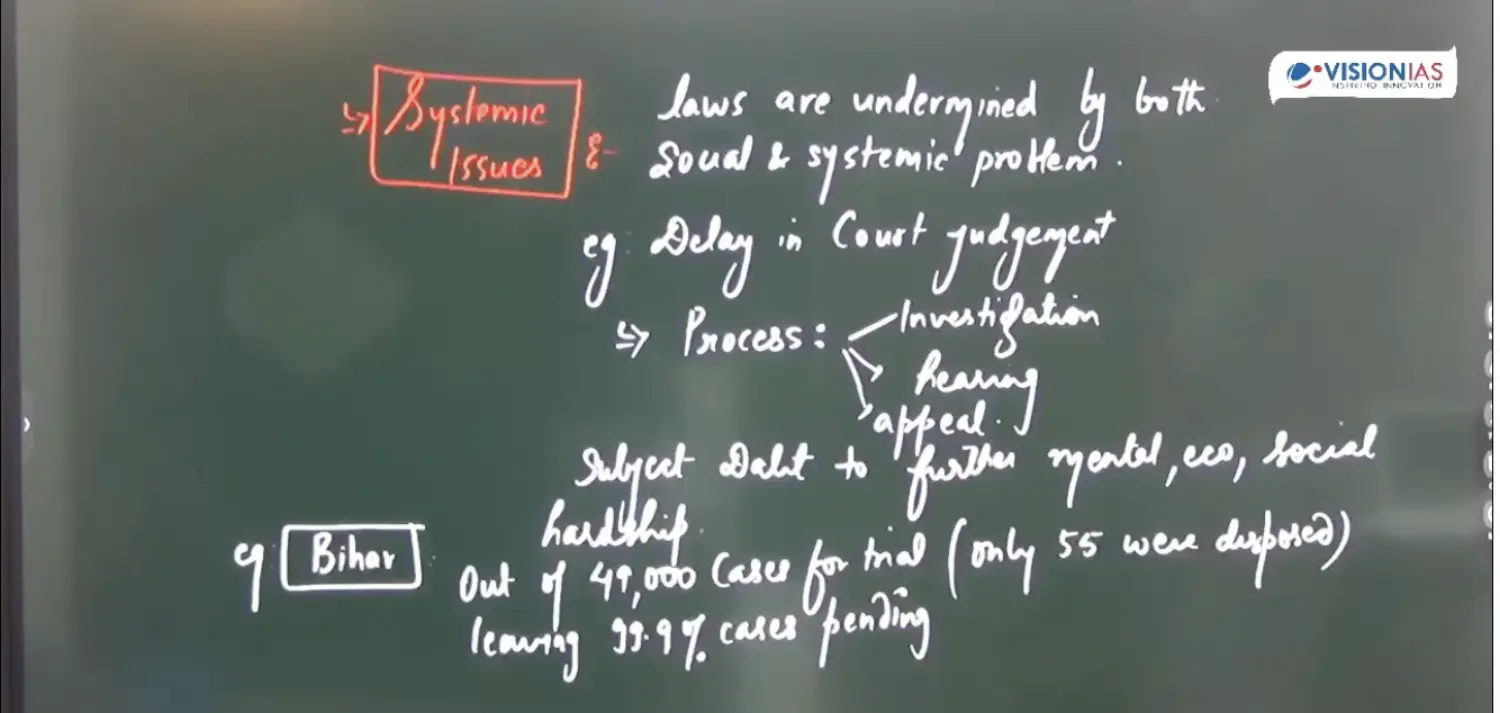 VISIONIAS
INSPIRING INNOVATION
↳ Systemic Issues :- laws are undermined by both
Social & systemic problem.
eg: Delay in Court judgement
↳ Process: Investigation
hearing
appeal.
Subject Dalit to further mental, eco, social
hardship.
eg Bihar Out of 49,000 Cases for trial (only 55 were disposed)
leaving 99.9% cases pending